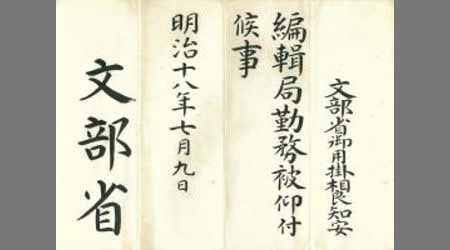 文部省御用掛相良知安
編輯局勤務被仰付
候事
明治十八年七月九日
文部省